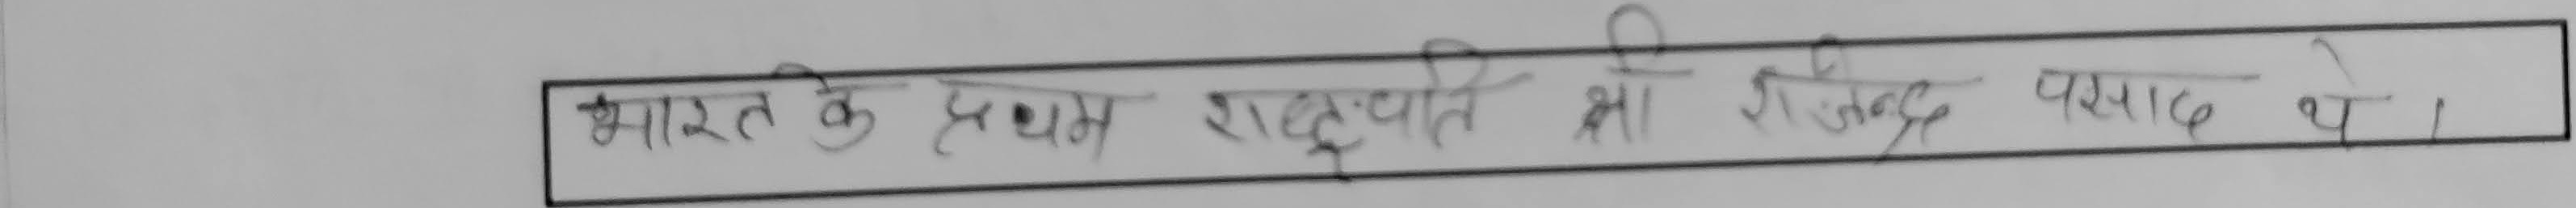 भारत के प्रथम राष्ट्रपति श्री राजेन्द्र पसाद थे ।